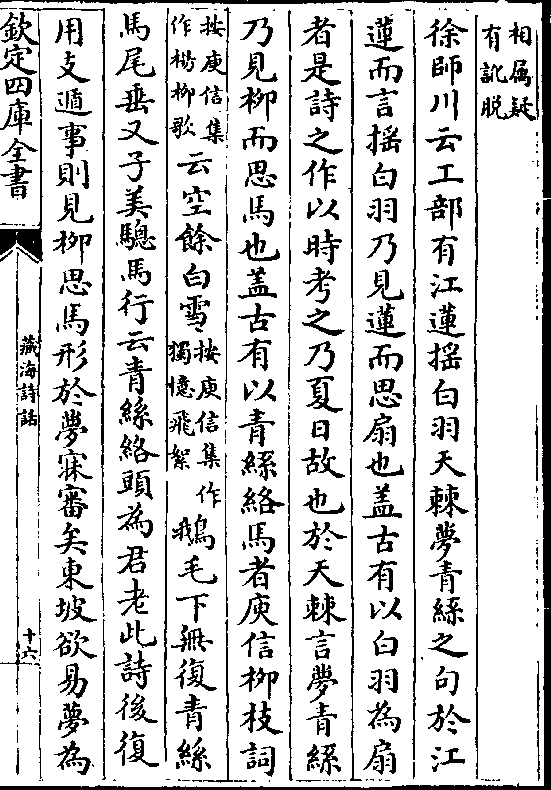 相属疑
有訛脱
徐師川云工部有江蓮揺白羽天棘夢青絲之句於江
蓮而言揺白羽乃見蓮而思扇也盖古有以白羽為扇
者是詩之作以時考之乃夏日故也於天棘言夢青絲
乃見柳而思馬也盖古有以青絲絡馬者庾信柳枝詞
按庾信集
作楊柳歌
云空餘白雪
按庾信集作
獨憶飛絮
鵝毛下無復青絲
馬尾垂又子美驄馬行云青絲絡頭為君老此詩後復
用支遁事則見柳思馬形於夢寐審矣東坡欲易夢為
欽定四庫全書
藏海詩話
十六